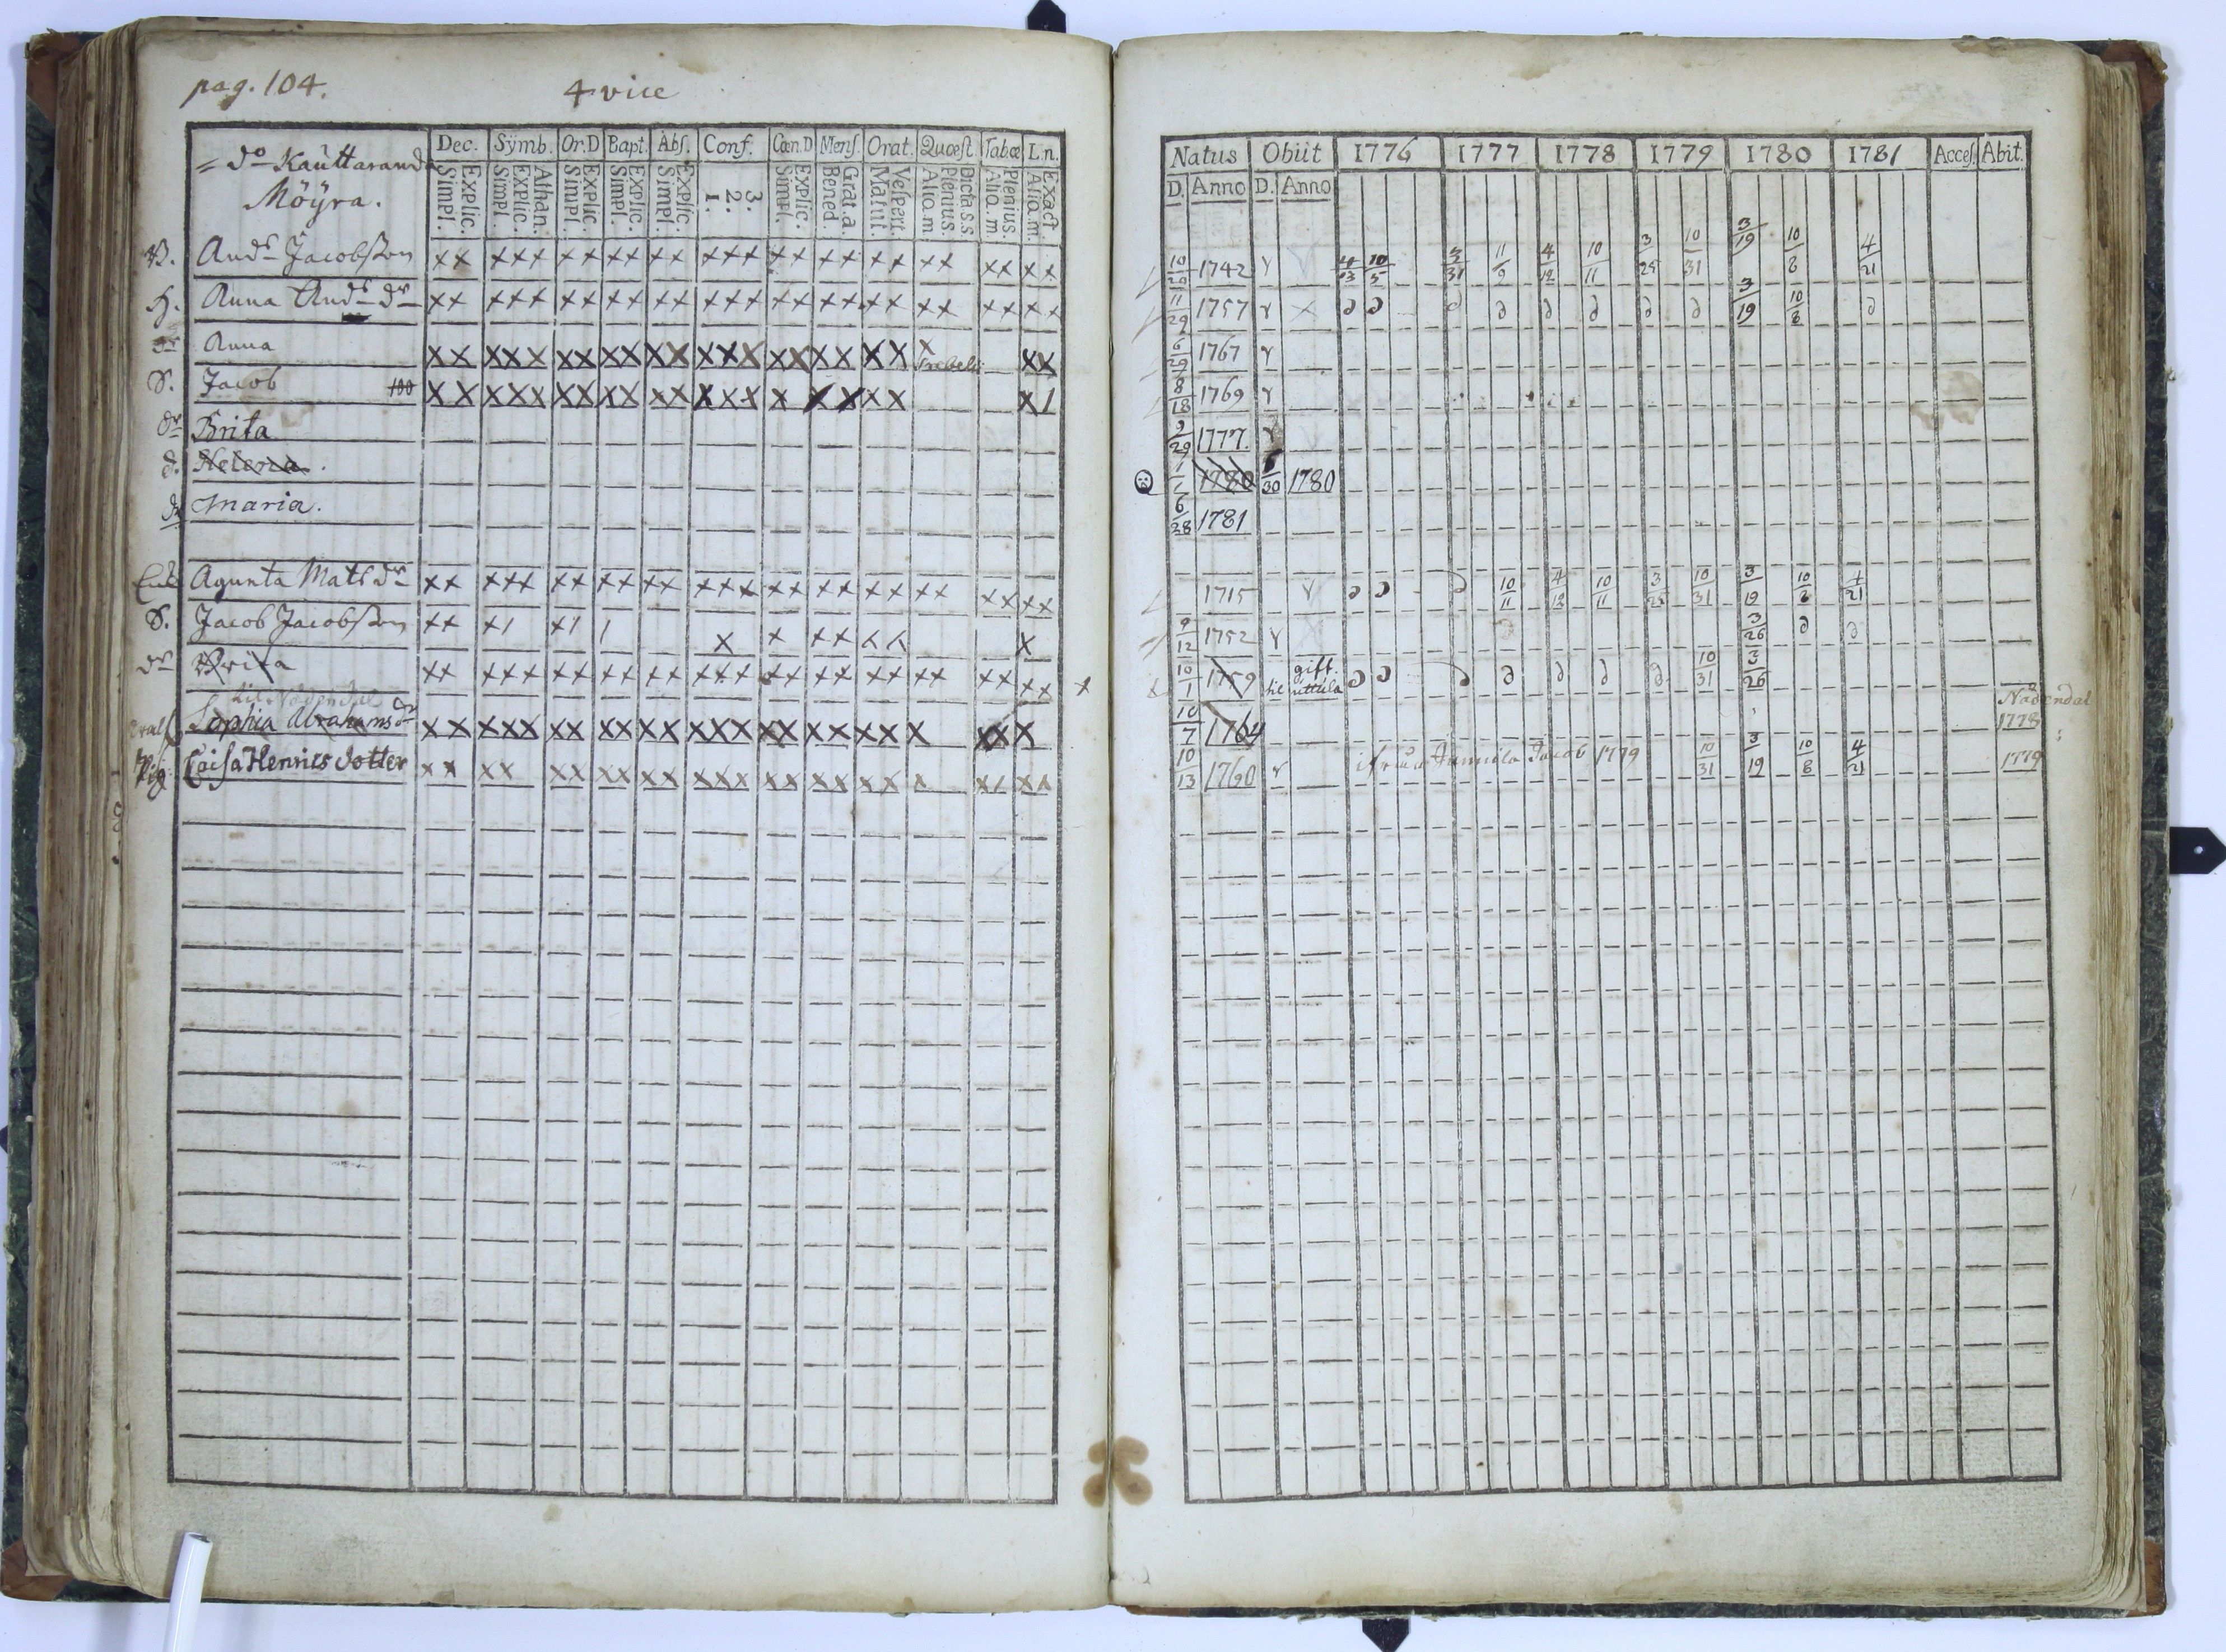 pag. 104.
4 vice
= do Kauttaranda
Möÿra.
Dec. Sÿmb. Or.D Bapt. Abſ. Conf. Cœn.D Menſ. Orat. Quœſt. Tab.œ L.n.
Explic. Simpl. Athan. Explic. Simpl. Explic. Simpl. Explic. Simpl. Explic. Simpl. 3. 2. 1. Explic. Simpl. Grat.a Bened. Veſpert. Matut. Dicta s.s. Plenius. Aliq.m. Plenius. Aliq.m. Exact. Aliq.m.
Natus Obiit 1776 1777 1778 1779 1780 1781 Acceſ. Abit.
D. Anno D. Anno
B. Andrs Jacobſson xx xxx xx xx xx xxx xx xx xx xx xx xx
H. Anna Andrs dr xx xxx xx xx xx xxx xx xx xx xx xx xx
dr Anna xx xxx xx xx xx xxx xx xx xx x xx
S. Jacob 100 xx xxx xx xx xx xxx x xx xx x1
dr Brita
d. Helena.
dr Maria.
Agunta Mats dr xx xxx xx xx xx xxx xx xx xx xx xx xx
S. Jacob Jacobſson xx x1 x1 1 x x xx x
dr Brita xx xxx xx xx xx xxx xx xx xx xx xx xx
til Nådendal
Sophia Abrahams dr xx xxx xx xx xx xxx xx xx xx x xx x
Pig. Caiſa Henrics dotter xx xx xx xx xx xxx xx xx xx
10/29 1742 4/13 10/5 3/31 11/9 4/12 10/11 3/25 10/31 3/19 10/8 4/21
11/29 1757 ∂ ∂ ∂ ∂ ∂ ∂ ∂ ∂ 3/19 10/8 ∂
6/29 1767
8/18 1769
9/29 1777.
1/1 1780 30 1780
6/28 1781
1715 ∂ ∂ ∂ 10/11 4/12 10/11 3/25 10/31 3/19 10/8 4/21
9/12 1752 3/26 ∂ ∂
10/1 1759 gift til uttula ∂ ∂ ∂ ∂ ∂ ∂ ∂ 10/31 3/26
10/7 1764 Nådendal 1778
10/13 1760 ifrån Junnila Jacob 1779 10/31 3/19 10/8 4/21 1779